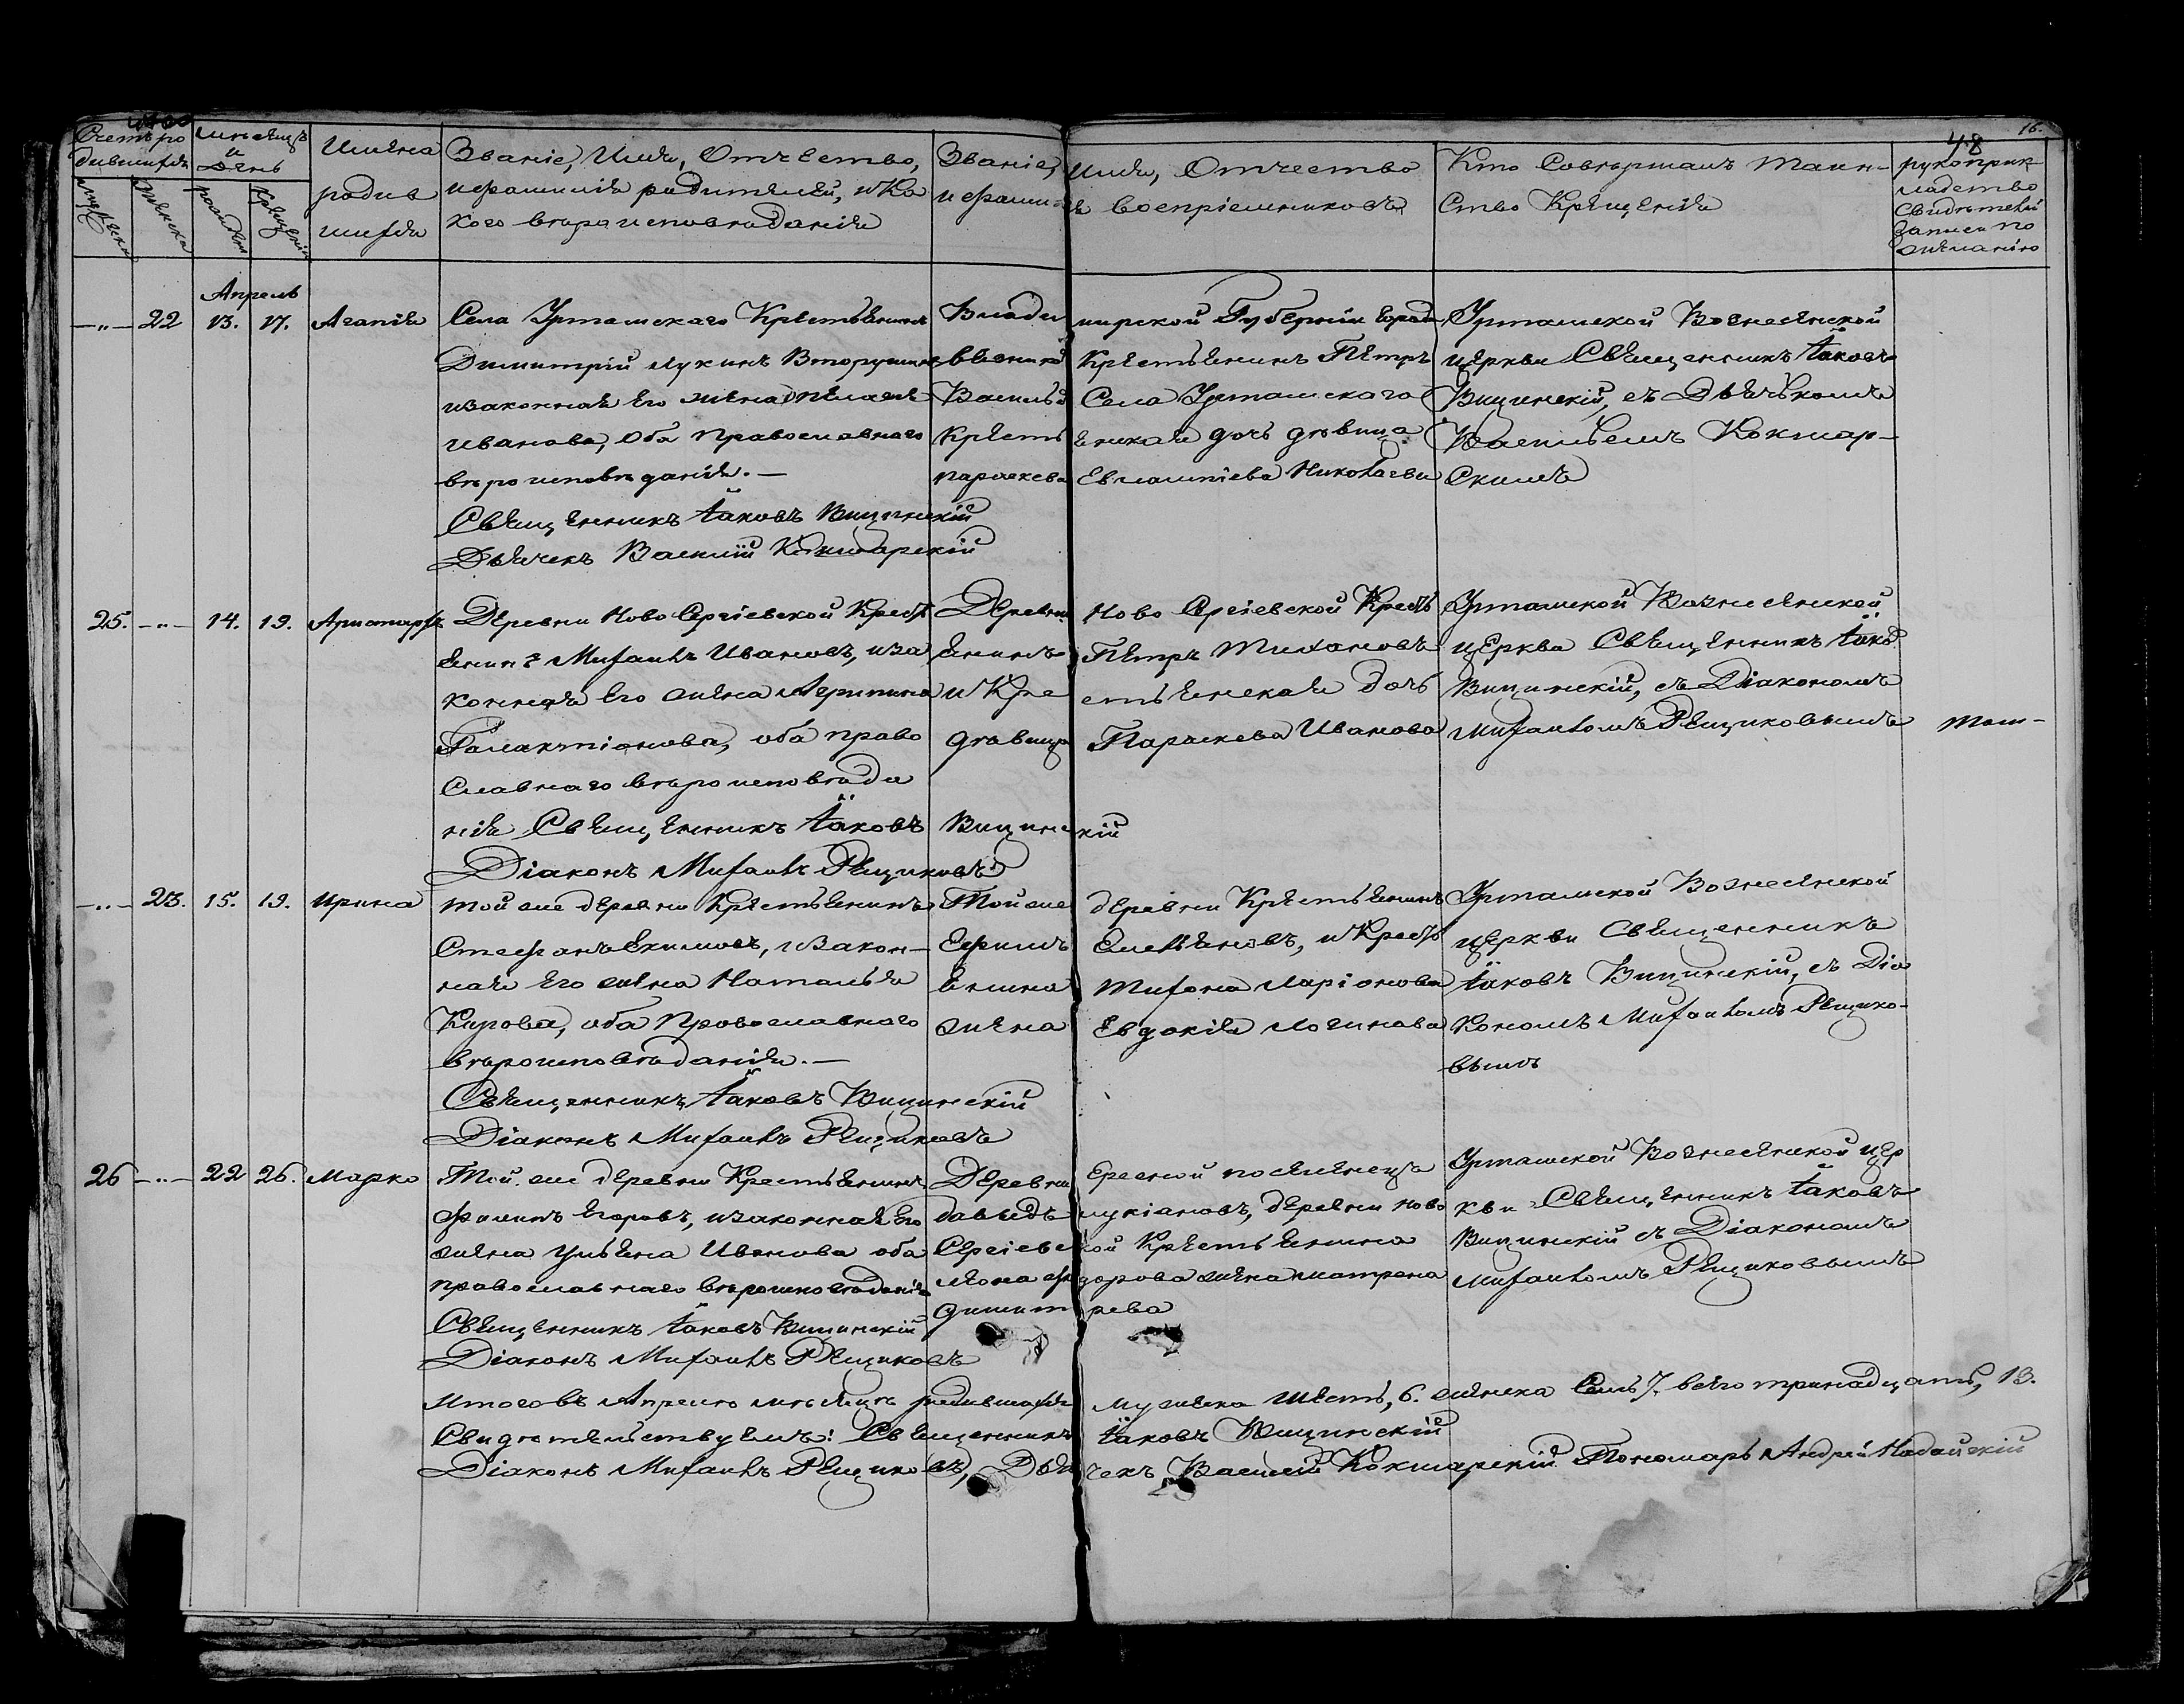 48
16.
Счетъ ро
дившихся
мужеска
женска
мѣсяцъ
и
день
рожденія
крещенія
Имена
родив
шихся
Званіе, Имя, Отчество,
и фамилія родителей, и ка
кого вѣроисповѣданія
Званіе, Имя, Отчество
и фамилія воспріемниковъ
Кто совершалъ Таин-
ство Крещенія
рукоприк
ладство
свидѣтелей
записи по
желанію
Апрель
—„— 22 13. 17. Агапія
Села Урташскаго Крестьянинъ
Димитрій Лукинъ Вторушинъ
и законная его жена Пелагея
Иванова, оба Православнаго
вѣроисповѣданія.—
Священникъ Іаковъ Вицинскій
Дьячекъ Василій Кокшарскій
Влади мирской Губерніи города
Крестьянинъ Петръ
Васильевъ Села Урташскаго
Крестьенская дочь дѣвица
Параскева Евлампіева Николаева
Урташской Вознесенской
церкви Священникъ Іаковъ
Вицинскій, съ Дьячькомъ
Васильемъ Кокшар-
скимъ
25. —„— 14. 19. Аристархъ
Деревни Ново Сергіевской Кресть
енинъ Михаилъ Ивановъ, и за
конная его жена Агрипина
Галактіонова, оба право
славнаго вѣроисповѣда
нія Священникъ Іаковъ Вицинскій
Діаконъ Михаилъ Рещиковъ
Деревни Ново Сергіевской Кресть
енинъ Петръ Тихоновъ
и Крестьенская дочь
дѣвица Параскева Иванова
Урташской Вознесенской
церкви Священникъ Іаковъ
Вицинскій, съ Діакономъ
Михаиломъ Рещиковымъ
—„— 23. 15. 19. Ирина
Той же деревни Крестьенинъ
Стефанъ Екимовъ, и закон-
ная его жена Наталья
Кирова, оба Православнаго
вѣроисповѣданія.—
Священникъ Іаковъ Вицинскій
Діаконъ Михаилъ Рещиковъ
Той же деревни Крестьенинъ
Ефимъ Емельеновъ, и Кресть
енина Тихона Ларіонова
жена Евдокія Логинова
Урташской Вознесенской
церкви Священникъ
Іаковъ Вицинскій, съ Діа
кономъ Михаиломъ Рещико-
вымъ
26 —„— 22 26. Марко
Той же деревни Крестьенинъ
Филипъ Егоровъ, и законная его
жена Ульена Иванова оба
православнаго вѣроисповѣданія
Священникъ Іаковъ Вицинскій
Діаконъ Михаилъ Рещиковъ
Деревни Ересной поселенецъ
Давыдъ Лукіановъ, деревни Ново
Сергіевской Крестьенина
Леона Федорова жена Матрена
Димитрева
Урташской Вознесенской цер
кви Священникъ Іаковъ
Вицинскій съ Діакономъ
Михаиломъ Рещиковымъ
Итого въ Апрелѣ мѣсяцѣ родившихся мужеска шесть, 6. женска семь 7. всего тринадцать, 13.
Свидѣтельствуемъ: Священникъ Іаковъ Вицинскій
Діаконъ Михаилъ Рещиковъ, Дьячекъ Василій Кокшарскій Пономарь Андрей Надайскій